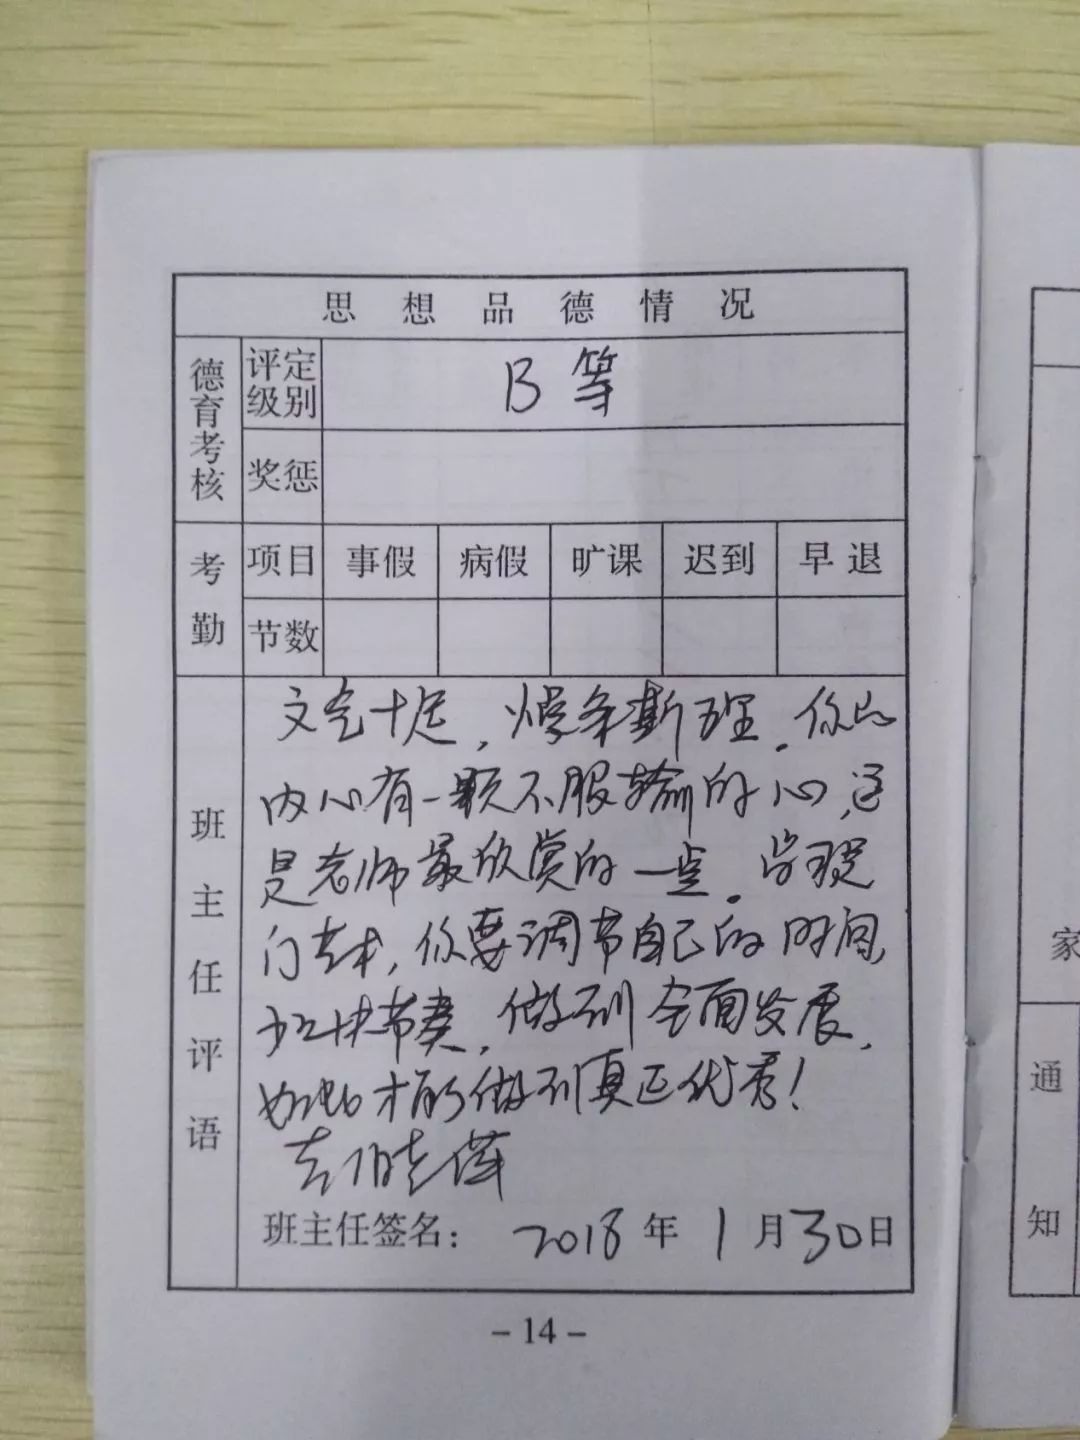 思想品德情况
德育考核
评定级别
B等
奖惩
考勤
项目 事假 病假 旷课 迟到 早退
节数
班主任评语
文气十足，慢条斯理。你的
内心有一颗不服输的心，这
是老师最欣赏的一点。
你要调节自己的时间，
加快节奏，做到全面发展，
如此才能做到真正优秀！
班主任签名：
2018年1月30日
-14-
家
通知